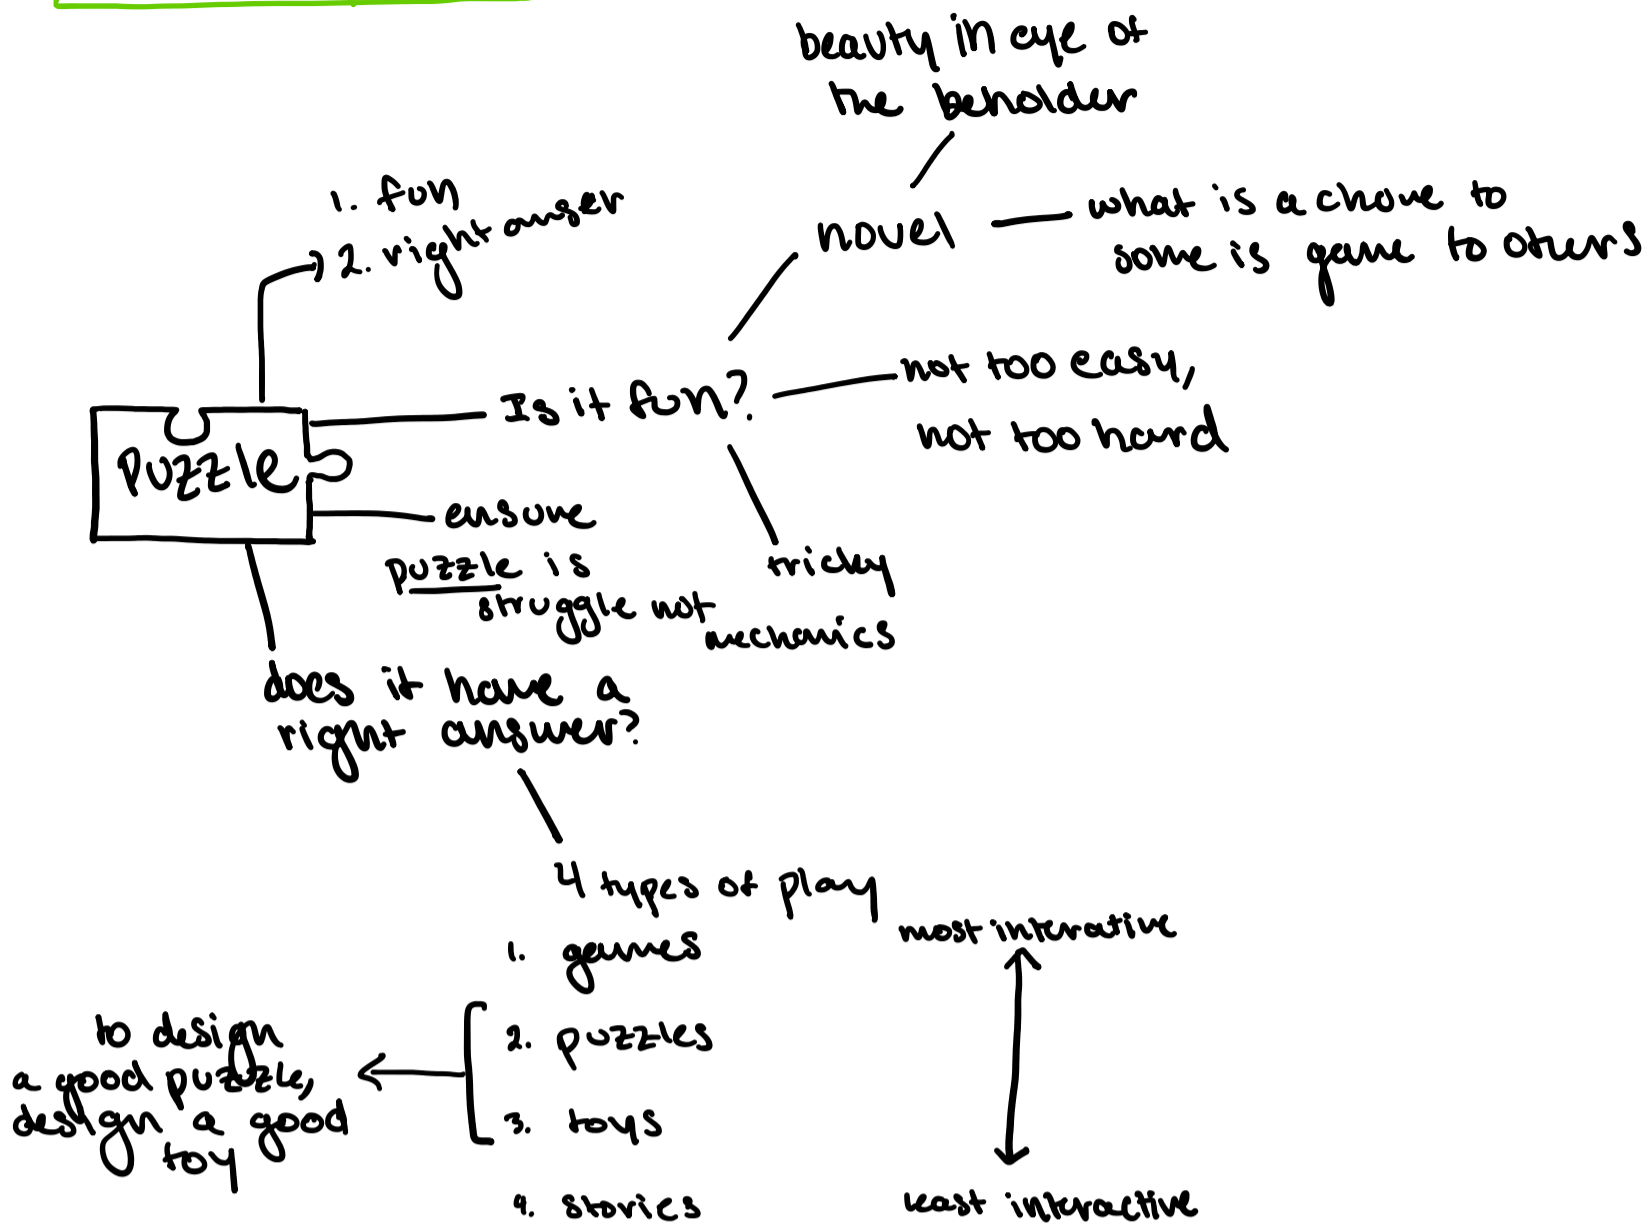 beauty in eye of
the beholder
1. fun
2. right anser
novel
what is a chore to
some is game to others
Is it fun?
not too easy,
not too hard
puzzle
ensure
puzzle is
struggle not
mechanics
tricky
does it have a
right answer?
4 types of play
1. games
2. puzzles
3. toys
4. stories
most interative
least interactive
to design
a good puzzle,
design a good
toy